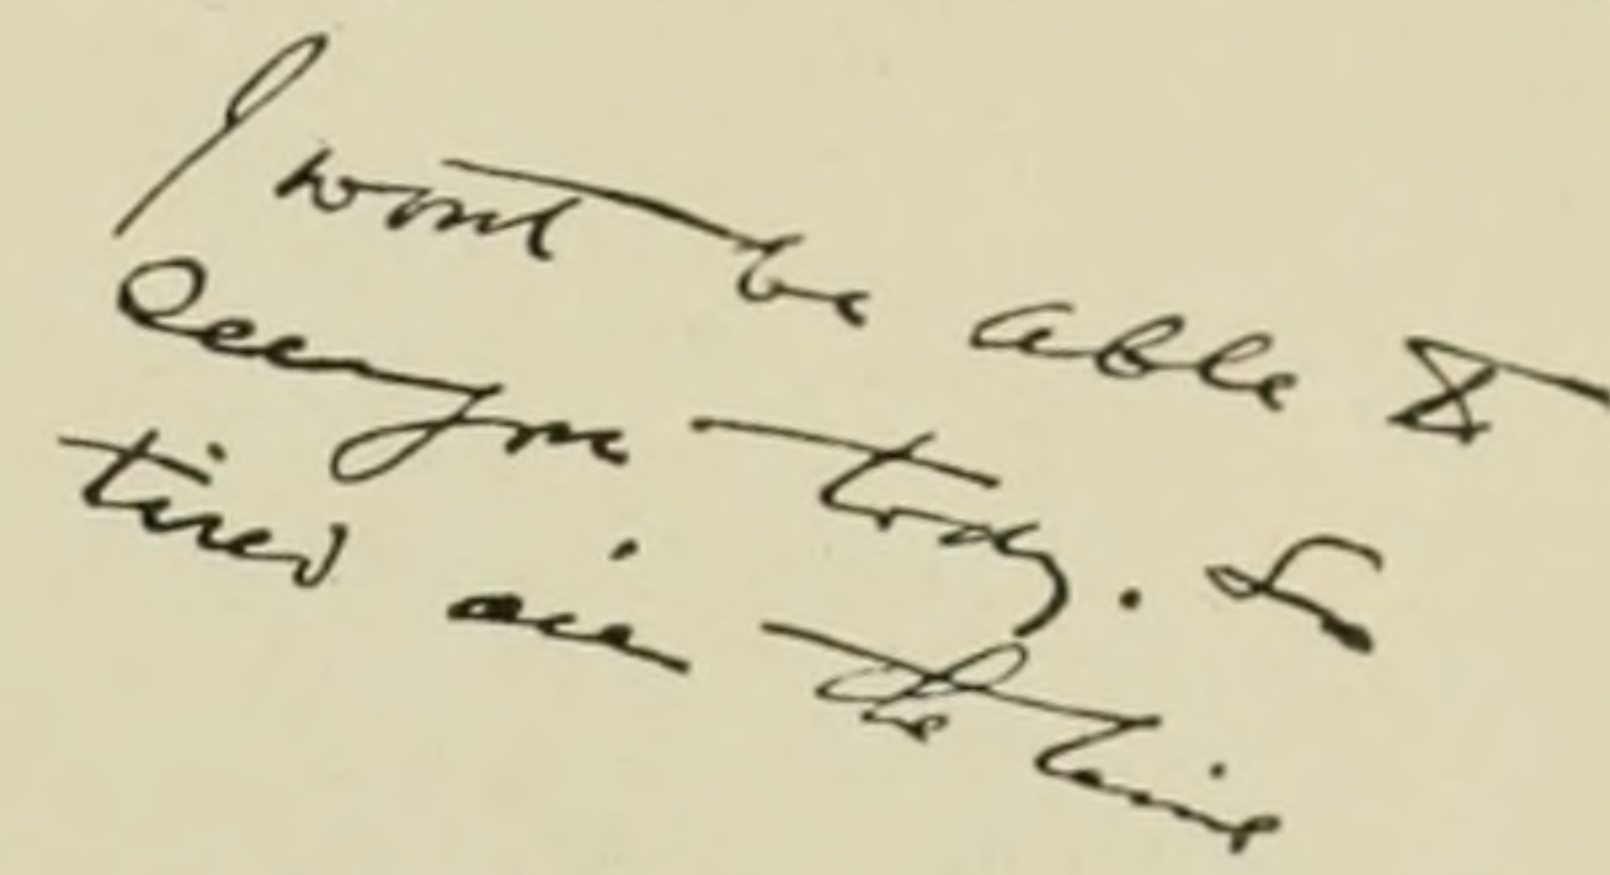 I wont be able to
See anyone today. So
tired all the time